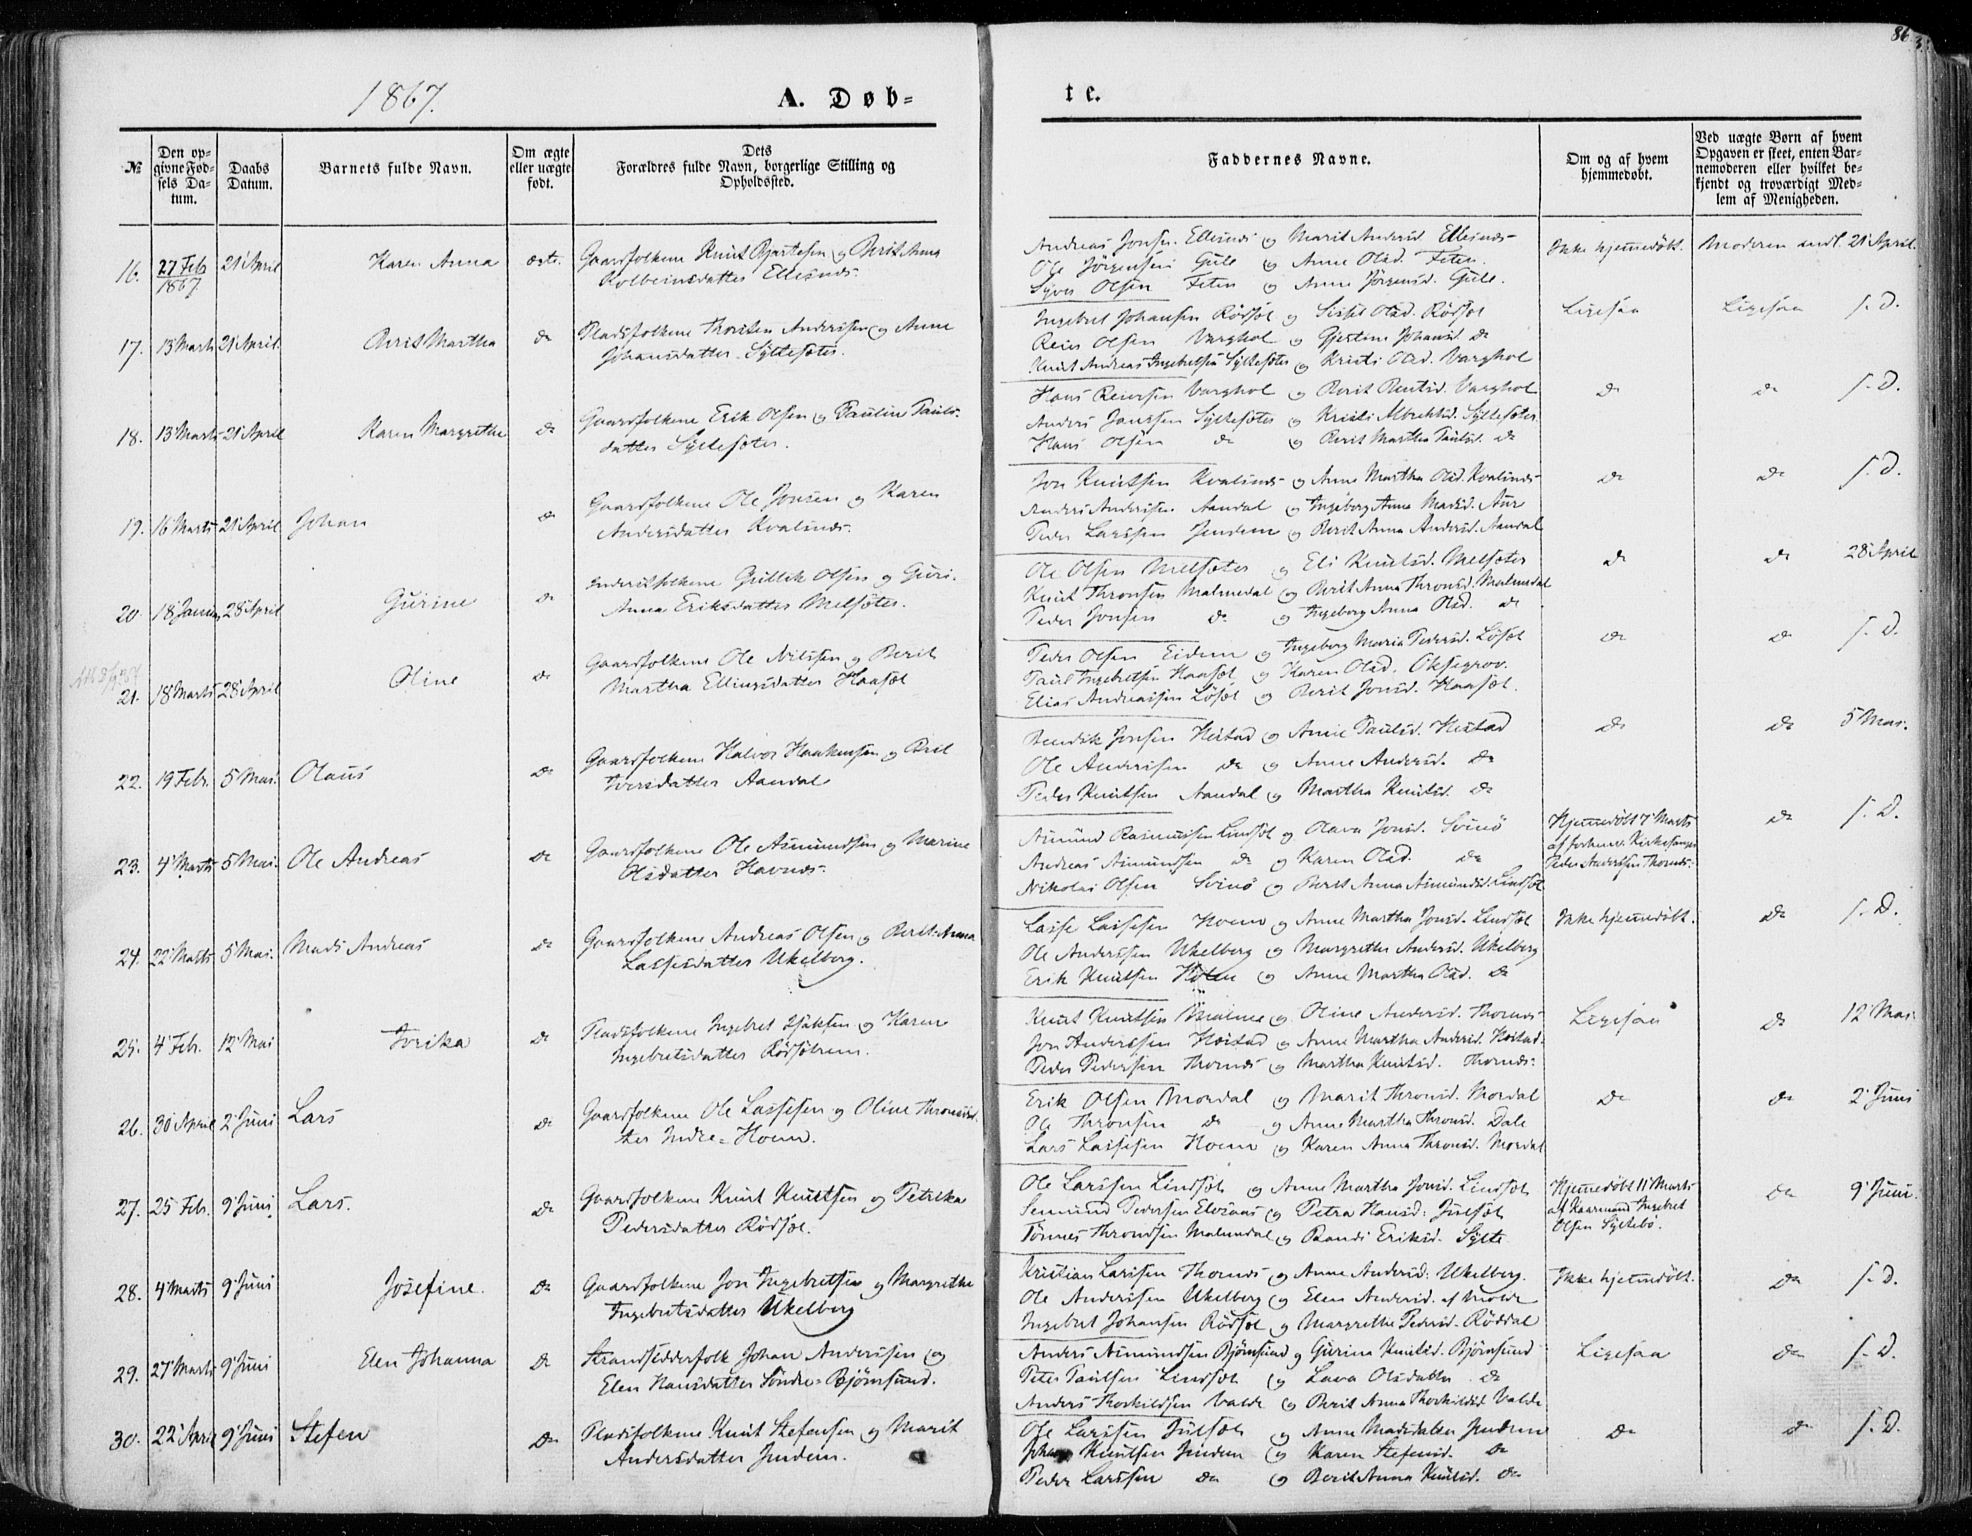 86
1867.
A. Døb=
te.
№
Den op-
givne Fød-
sels Da-
tum.
Daabs
Datum.
Barnets fulde Navn.
Om ægte
eller uægte
født.
Dets
Forældres fulde Navn, borgerlige Stilling og
Opholdssted.
Faddernes Navne.
Om og af hvem
hjemmedøbt.
Ved uægte Børn af hvem
Opgaven er skeet, enten Bar-
nemoderen eller hvilket be-
kjendt og troværdigt Med-
lem af Menigheden.
16. 27 Feb 1867. 21 April Karen Anna ægte. Gaardfolkene Knut Bjartesen og Berit Anna
Kolbeinsdatter Ellesnæs.
Andreas Jonsen Ellesnæs og Marit Andersd. Ellesnæs
Ole Jörgensen Gule og Anne Olsd. Feten
Syver Olsen Feten og Anne Jörgensd. Gule.
Ikke hjemmedöbt. Moderen indl. 21 April.
17. 13 Marts 21 April. Berit Martha do Pladsfolkene Thorsten Anderssen og Anne
Johansdatter Syltesæter.
Ingebret Johansen Rödsæt og Sissel Olsd. Rödsæt
Reier Olsen Varghol og Gjertine Johansd. do
Knut Andreas Ingebretsen Syltesæter og Kristi Olsd. Varghol
Ligesaa Ligesaa s. D.
18. 13 Marts 21 April Karen Margrethe do Gaardfolkene Erik Olsen og Paulin Pauls-
datter Syltesæter.
Hans Reiersen Varghol og Berit Bentsd. Varghol
Anders Jonssen Syltesæter og Kristi Albrektsd. Syltesæter
Hans Olsen do og Berit Martha Paulsd. do
do do s. D.
19. 16 Marts 21 April Johan do Gaardfolkene Ole Jonsen og Karen
Andersdatter Kvalnæs.
Jon Knutsen Kvalnæs og Anne Martha Olsd. Kvalnæs
Anders Anderssen Aandal og Ingeborg Anna Madsd. Aur
Peder Larssen Jendem og Berit Anna Andersd. Aandal
do do s. D.
20. 18 Januar 28 April Gurine do Inderstfolkene Gullik Olsen og Guri-
Anna Eriksdatter Melsæter.
Ole Olsen Melsæter og Eli Knutsd. Melsæter
Knut Thronsen Malmedal og Berit Anna Thronsd. Malmedal
Peder Jonsen do og Ingeborg Anna Olsd. do
do do 28 April
21. 18 Marts 28 April Oline do Gaardfolkene Ole Nilssen og Berit
Martha Ellingsdatter Haasæt
Peder Olsen Eidem og Ingeborg Maria Pedersd. Löset
Paul Ingebretsen Haasæt og Karen Olsd. Oksegrov.
Elias Andreassen Löset og Berit Jonsd. Haasæt.
do do s. D.
22. 19 Febr. 5 Mai. Olaus do Gaardfolkene Halvor Haakensen og Beret
Iversdatter Aandal
Bendik Jonsen Heistad og Anne Paulsd. Heistad
Ole Anderssen do og Anne Andersd. do
Peder Knutsen Aandal og Martha Knutsd. do
do do 5 Mai.
23. 4 Marts 5 Mai. Ole Andreas do Gaardfolkene Ole Asmundsen og Marine
Olsdatter Havnæs.
Asmund Rasmussen Lindsæt og Olava Jonsd. Svinö
Andreas Asmundsen do og Karen Olsd. do
Nikolai Olsen Svinö og Beret Anna Asmundsd. Lindsæt
Hjemmedöbt 7 Marts
af forhenv. Kirkesanger
Peder Anderssen Thornæs.
do s. D.
24. 22 Marts 5 Mai. Mads Andreas do Gaardfolkene Andreas Olsen og Berit Anna
Lassesdatter Ukelberg.
Lasse Lassesen Hoem og Anne Martha Jonsd. Lindsæt
Ole Anderssen Ukelberg og Margrethe Andersd. Ukelberg
Erik Knutsen Holen og Anne Martha Olsd. do
Ikke hjemmedöbt. do s. D.
25. 4 Febr. 12 Mai Iverika do Pladsfolkene Ingebret Isaksen og Karen
Ingebretsdatter Rödsætrem.
Knut Knutsen Malme og Oline Andersd. Thornæs
Jon Anderssen Heistad og Anne Martha Andersd. Heistad.
Peder Pederssen Thornæs og Martha Knutsd. Thornæs.
Ligesaa do 12 Mai.
26. 30 April 2 Juni Lars do Gaardfolkene Ole Lassesen og Oline Thronsdat-
ter Indre=Hoem.
Erik Olsen Mordal og Marit Thronsd. Mordal
Ole Thronsen do og Anne Martha Thronsd. Dale
Lars Lassesen Hoem og Karen Anna Thronsd. Mordal
do do 2 Juni
27. 25 Feb. 9 Juni Lars. do Gaardfolkene Knut Knutsen og Petrika
Pedersdatter Rödsæt.
Ole Larssen Lindsæt og Anne Martha Jonsd. Lindsæt
Semund Pedersen Elvsaas og Petra Hansd. Julsæt
Tönnes Throndsen Malmedal og Randi Eriksd. Sylte
Hjemmedöbt 11 Marts
af Kaarmand Ingebret
Olsen Syltebö.
do 9 Juni.
28. 4 Marts 9 Juni Josefine. do Gaardfolkene Jon Ingebretsen og Margrethe
Ingebretsdatter Ukelberg
Kristian Larssen Thornæs og Anne Andersd. Ukelberg.
Ole Anderssen Ukelberg og Elen Andersd. af Molde
Ingebret Johansen Rödsæt og Margrethe Pedersd. Röddal
Ikke hjemmedöbt. do s. D.
29. 27 Marts 9 Juni Elen Johanna do Strandsidderfolk Johan Anderssen og
Elen Hansdatter Söndre=Björnsund.
Anders Asmundsen Björnsund og Gurina Knutsd. Björnsund
Peter Paulsen Lindsæt og Lava Olsdatter do
Anders Thorkildsen Valde og Berit Anna Thorkildsd. Valde
Ligesaa do s. D.
30. 22 April 9 Juni Stefen do Pladsfolkene Knut Stefensen og Marit
Andersdatter Jendem.
Ole Larssen Julsæt og Anne Madsdatter Jendem
Johan Knutsen Jendem og Karen Stefensd. do
Peder Larssen do og Berit Anna Knutsd. do
do do s. D.